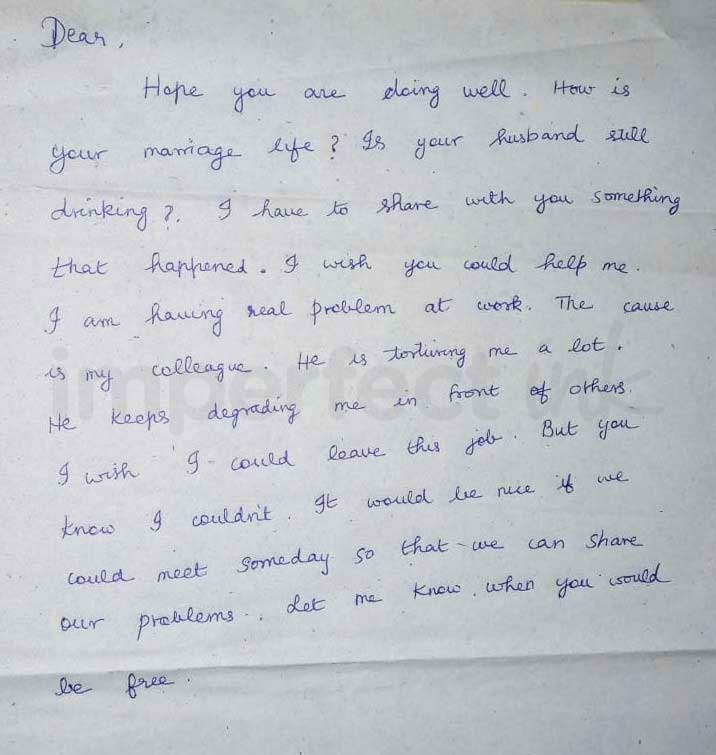 Dear,
Hope you are doing well. How is
your marriage life? Is your husband still
drinking?. I have to share with you something
that happened. I wish you could help me.
I am having real problem at work. The cause
is my colleague. He is torturing me a lot.
He keeps degrading me in front of others.
I wish I could leave this job. But you
know I couldn't. It would be nice if we
could meet someday so that we can share
our problems. Let me know when you would
be free.
imperfect ink